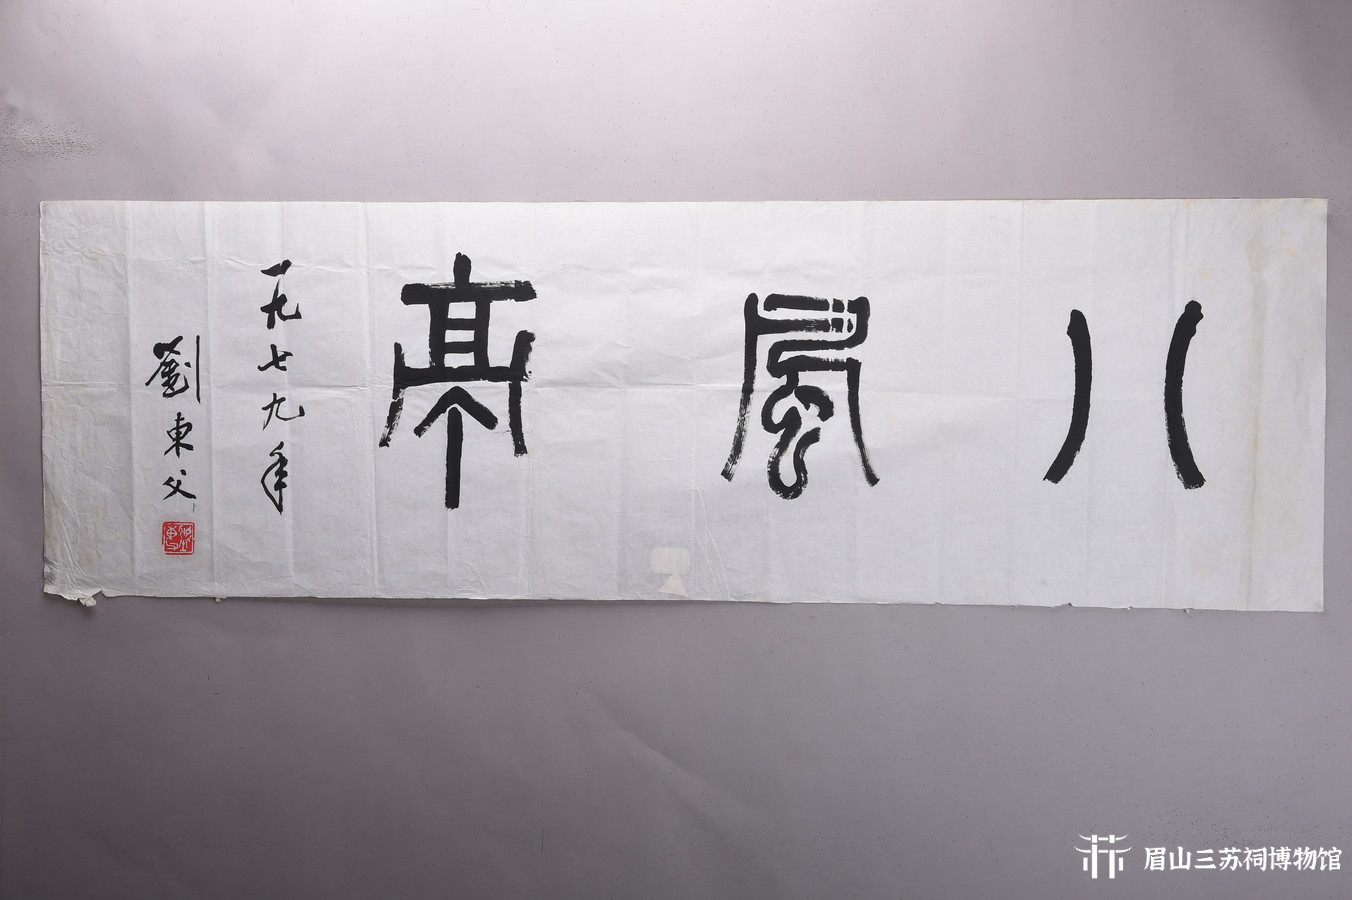 八風亭
一九七九年
劉東父
眉山三苏祠博物馆